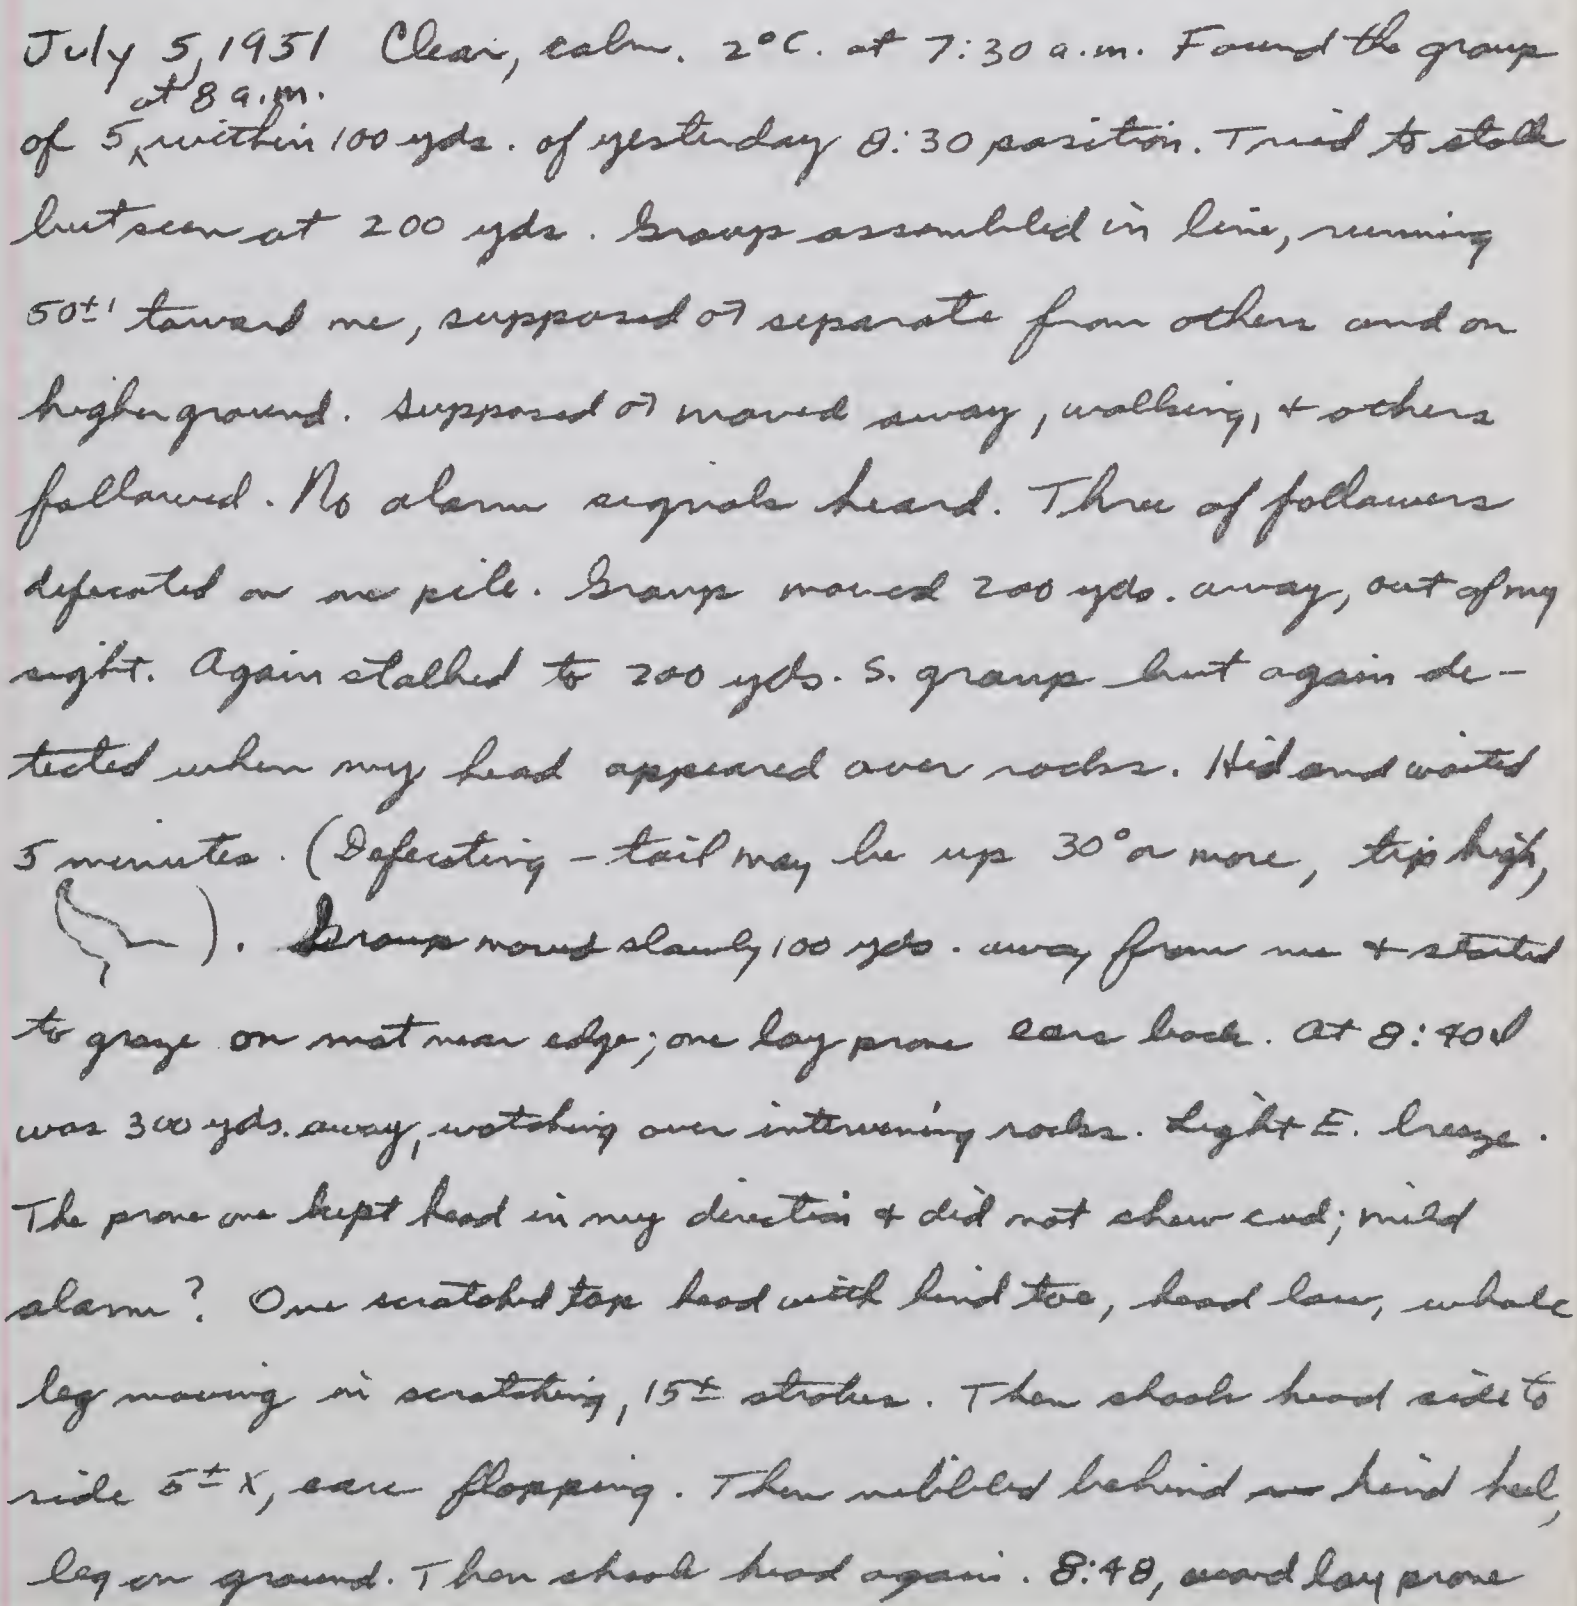 July 5, 1951 Clear, calm. 2°C. at 7:30 a.m. Found the group
at 8 a.m.
of 5 ^ within 100 yds. of yesterday 8:30 position. Tried to stalk
but seen at 200 yds. Group assembled in line, running
50±' toward me, supposed ♂ separate from others and on
higher ground. Supposed ♂ moved away, walking, + others
followed. No alarm signals heard. Three of followers
defecated on one pile. Group moved 200 yds. away, out of my
sight. Again stalked to 200 yds. S. group but again de-
tected when my head appeared over rocks. Hid and waited
5 minutes. (Defecating - tail may be up 30° or more, tip high,
). Group moved slowly 100 yds. away from me + started
to graze on mat near edge; one lay prone ears back. At 8:40 I
was 300 yds. away, watching over intervening rocks. Light E. breeze.
The prone one kept head in my direction & did not chew cud; mild
alarm? One scratched top head with hind toe, head low, whole
leg moving in scratching, 15± strokes. Then shook head side to
side 5± X, ears flopping. Then nibbled behind hind heel,
leg on ground. Then shook head again. 8:48, lay prone